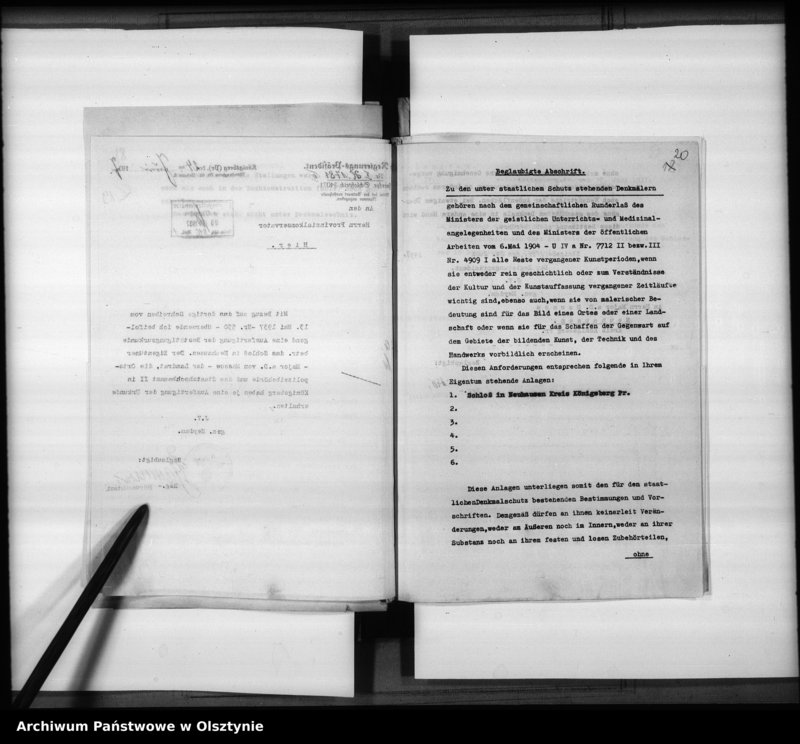 Regierungs-Präsident.
Königsberg (Pr), den
An den
Herrn Provinzialkonservator
Hier.
Mit Bezug auf das dortige Schreiben von
13. Mai 1937 -Nr. 550 - übersende ich beifol-
gend eine Ausfertigung der Bestätigungsurkunde
betr. das Schloß in Neuhausen. Der Eigentümer
- Major a.D. von Massow - der Landrat, die Orts-
polizeibehörde und das Staatshochbauamt II in
Königsberg haben je eine Ausfertigung der Urkunde
erhalten.
I.V.
gez. Heyden.
Beglaubigt:
20
Beglaubigte Abschrift.
Zu den unter staatlichem Schutz stehenden Denkmälern
gehören nach dem gemeinschaftlichen Runderlaß des
Ministers der geistlichen Unterrichts- und Medizinal-
angelegenheiten und des Ministers der öffentlichen
Arbeiten vom 6.Mai 1904 - U IV a Nr. 7712 II bezw.III
Nr. 4909 I alle Reste vergangener Kunstperioden,wenn
sie entweder rein geschichtlich oder zum Verständnisse
der Kultur und der Kunstauffassung vergangener Zeitläufte
wichtig sind,ebenso auch,wenn sie von malerischer Be-
deutung sind für das Bild eines Ortes oder einer Land-
schaft oder wenn sie für das Schaffen der Gegenwart auf
dem Gebiete der bildenden Kunst, der Technik und des
Handwerks vorbildlich erscheinen.
Diesen Anforderungen entsprechen folgende in Ihrem
Eigentum stehende Anlagen:
1. Schloß in Neuhausen Kreis Königsberg Pr.
2.
3.
4.
5.
6.
Diese Anlagen unterliegen somit den für den staat-
lichenDenkmalschutz bestehenden Bestimmungen und Vor-
schriften. Demgemäß dürfen an ihnen keinerleit Verän-
derungen,weder am Äußeren noch im Innern,weder an ihrer
Substanz noch an ihrem festen und losen Zubehörteilen,
ohne
Archiwum Państwowe w Olsztynie